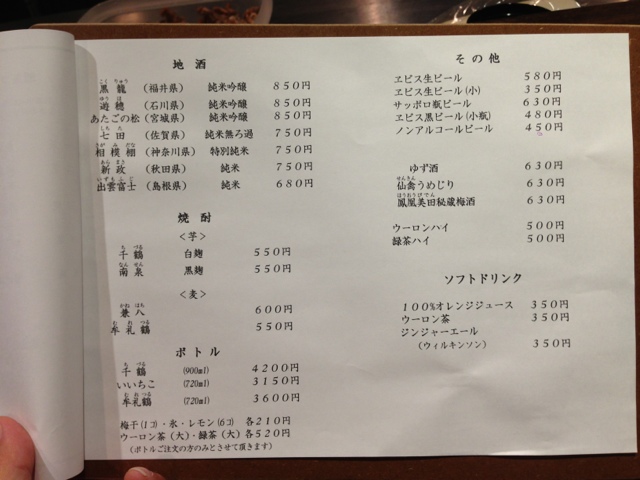 地酒
黒龍 (福井県) 純米吟醸 850円
遊穂 (石川県) 純米吟醸 850円
あたごの松 (宮城県) 純米吟醸 850円
七田 (佐賀県) 純米無ろ過 750円
相模棚 (神奈川県) 特別純米 750円
新政 (秋田県) 純米 750円
出雲富士 (島根県) 純米 680円
焼酎
<芋>
千鶴 白麹 550円
南泉 黒麹 550円
<麦>
兼八 600円
牟礼鶴 550円
ボトル
千鶴 (900ml) 4200円
いいちこ (720ml) 3150円
牟礼鶴 (720ml) 3600円
梅干(1コ)・氷・レモン(6コ) 各210円
ウーロン茶(大)・緑茶(大) 各520円
(ボトルご注文の方のみとさせて頂きます)
その他
ヱビス生ビール 580円
ヱビス生ビール(小) 350円
サッポロ瓶ビール 630円
ヱビス黒ビール(小瓶) 480円
ノンアルコールビール 450円
ゆず酒 630円
仙禽うめじり 630円
鳳凰美田秘蔵梅酒 630円
ウーロンハイ 500円
緑茶ハイ 500円
ソフトドリンク
100%オレンジジュース 350円
ウーロン茶 350円
ジンジャーエール
(ウィルキンソン) 350円